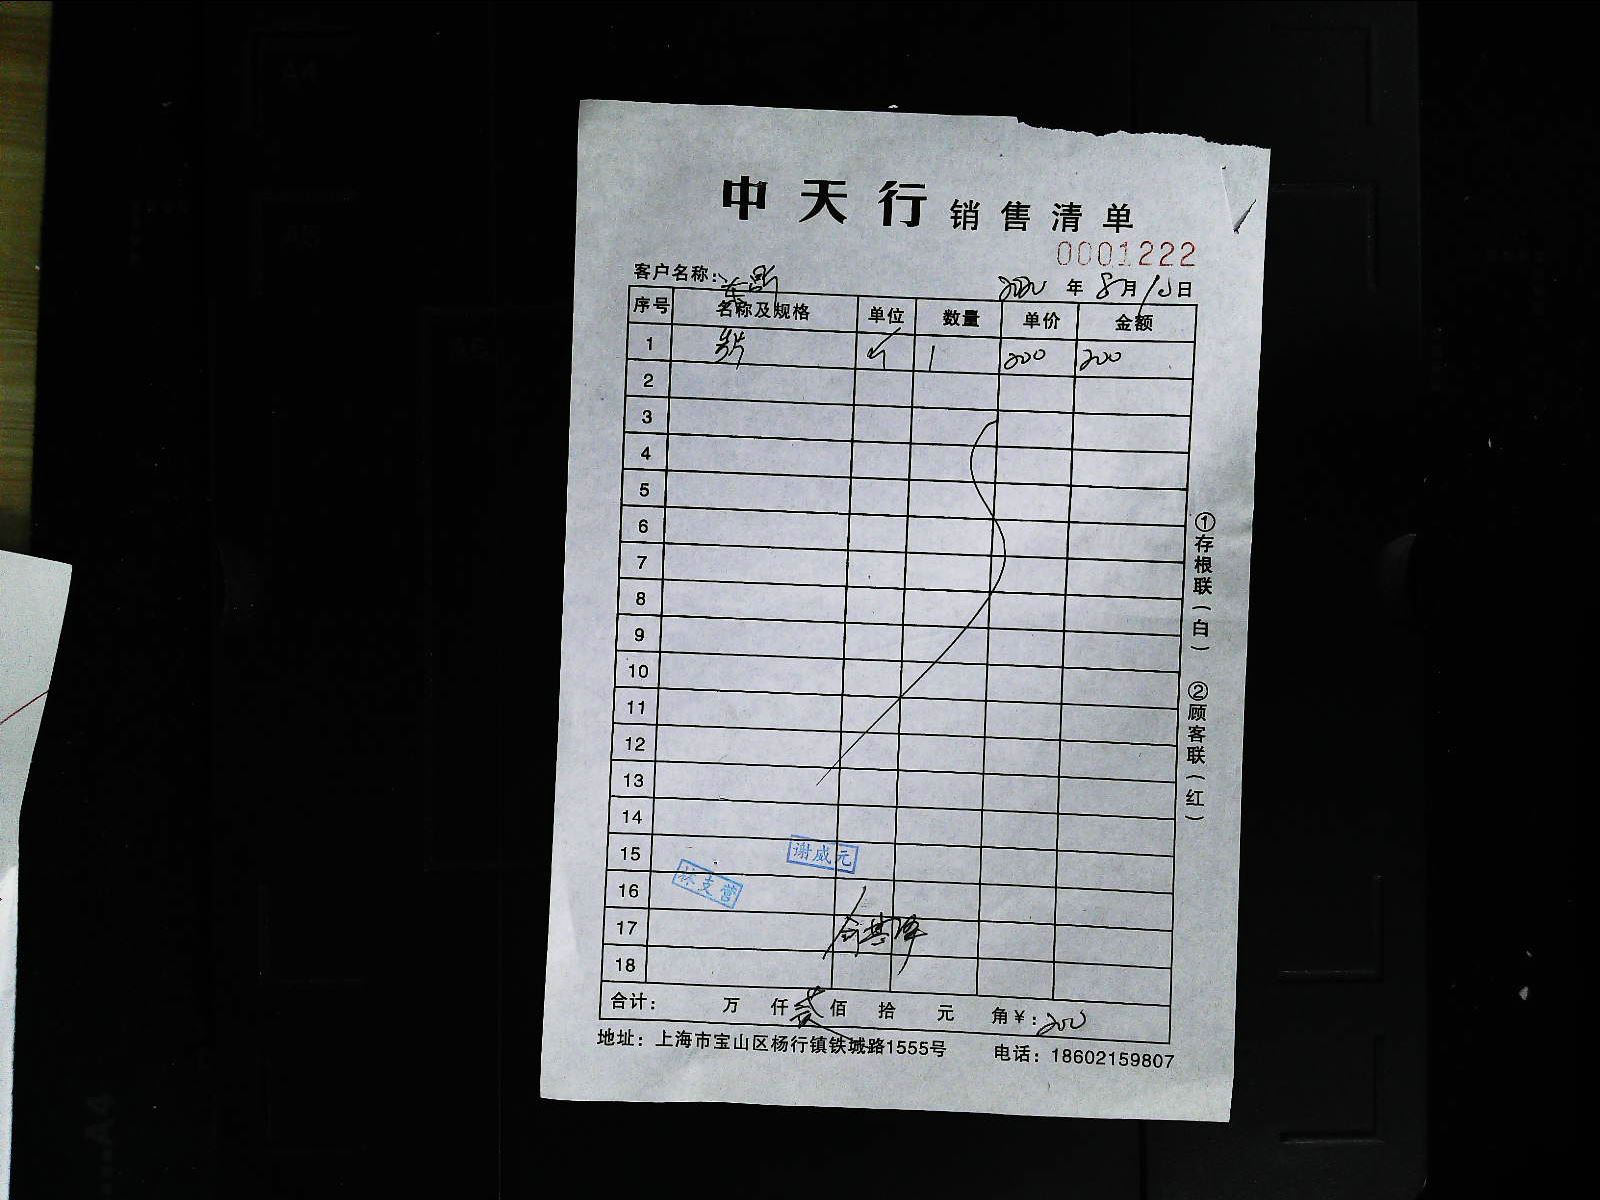 中天行 销售清单
0001222
客户名称：
2020 年 8月 10日
序号 名称及规格 单位 数量 单价 金额
1 个 1 200 200
2
3
4
5
6
7
8
9
10
11
12
13
14
15
16
17
18
谢威元
林支营
合计： 万 仟 贰 佰 拾 元 角 ¥：200
地址：上海市宝山区杨行镇铁城路1555号 电话：18602159807
①存根联（白） ②顾客联（红）